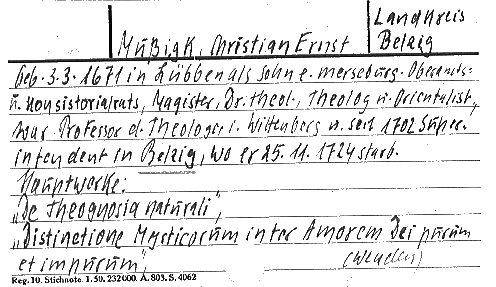 Landkreis
Mußigk, Christian Ernst Belzig
Geb. 3.3.1671 in Lübben als Sohn e. merseburg. Oberamts-
u. Konsistorialrats, Magister, Dr. theol., Theolog u. Orientalist,
war Professor d. Theologie i. Wittenberg u. seit 1702 Super-
intendent in Belzig, wo er 25. 11. 1724 starb.
Hauptwerke:
„De Theognosia naturali",
„Distinctione Mysticorum inter Amorem Dei purum
et impurum", (Wenden)
Reg. 10. Stichnote. 1. 50. 232000. A. 803. S. 4062